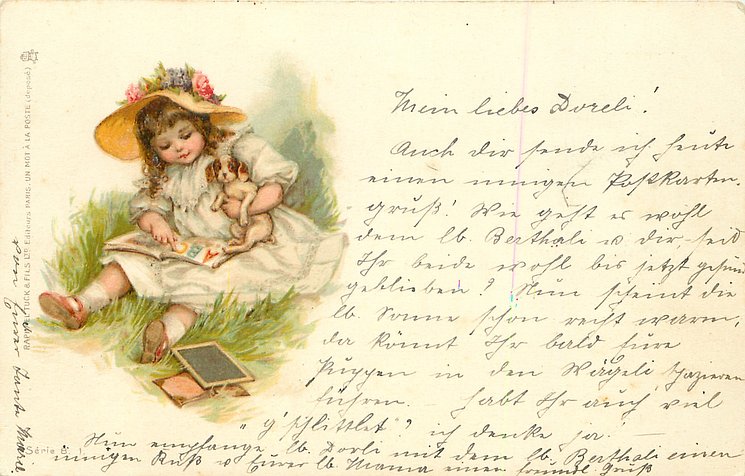 Mein liebes Doreli!
Auch dir sende ich heute
einen innigen Postkarten-
gruß! Wie geht es wohl
dem lb. Berthali u dir, seid
Ihr beide wohl bis jetzt gesund
geblieben? Nun scheint die
lb. Sonne schon recht warm,
da könnt Ihr bald Eure
Puppen in den Wägeli spazieren
führen. Habt Ihr auch viel
"g'schlittlet"? ich denke ja!
Nun empfange lb. Dorli mit dem lb. Berthali einen
innigen Kuß u Eurer lb. Mama einen freundl. Gruß
von Eurer
RAPHAEL TUCK & FILS, LTD Editeurs PARIS. UN MOT À LA POSTE (deposé)
Série 8
ABC